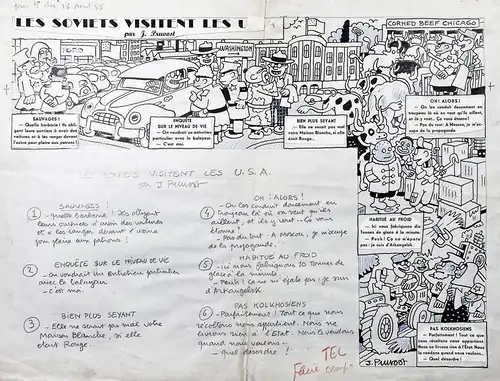 pour N° du 18 Août 55
LES SOVIETS VISITENT LES U
par J. Pruvost
FORD
WASHINGTON
CORNED BEEF CHICAGO
SAUVAGES !
— Quelle barbarie ! Ils obli-
gent leurs ouvriers à avoir des
voitures et à les ranger devant
l'usine pour plaire aux patrons !
ENQUÊTE
SUR LE NIVEAU DE VIE
— On voudrait un entretien
particulier avec le balayeur.
— C'est moi.
BIEN PLUS SEYANT
— Elle ne serait pas mal
votre Maison Blanche, si elle
était Rouge...
OH ! ALORS !
— On les conduit doucement en
troupeau là où on veut qu'ils aillent,
et ils y vont... Ça vous étonne !
— Pas du tout : A Moscou, je m'oc-
cupe de la propagande.
HABITUÉ AU FROID
— Ici nous fabriquons dix
Tonnes de glace à la minute.
— Peuh ! Ça ne m'épate
pas : je suis d'Arkangelsk.
PAS KOLKHOSIENS
— Parfaitement ! Tout ce que
nous récoltons nous appartient.
Nous ne livrons rien à l'Etat. Nous
le vendons quand nous voulons...
— Quel désordre !
J. Pruvost
LES SOVIETS VISITENT LES U.S.A.
par J. Pruvost
SAUVAGES !
1 - Quelle barbarie ! Ils obligent
leurs ouvriers à avoir des voitures
et à les ranger devant l'usine
pour plaire aux patrons !
2 ENQUÊTE SUR LE NIVEAU DE VIE
- On voudrait un entretien particulier
avec le balayeur.
- C'est moi.
BIEN PLUS SEYANT
3 - Elle ne serait pas mal votre
Maison Blanche, si elle
était Rouge...
OH ! ALORS !
4 - On les conduit doucement en
troupeau là où on veut qu'ils
aillent, et ils y vont.. Ça vous
étonne ?
- Pas du tout : A Moscou, je m'occupe
de la propagande.
HABITUÉ AU FROID
5 - Ici nous fabriquons 10 Tonnes de
glace à la minute.
- Peuh ! Ça ne m'épate pas : je suis
d'Arkangelsk
PAS KOLKHOSIENS
6 - Parfaitement ! Tout ce que nous
récoltons nous appartient. Nous ne
livrons rien à l'Etat. Nous le vendons
quand nous voulons...
- Quel désordre !
TEL
Faire compo